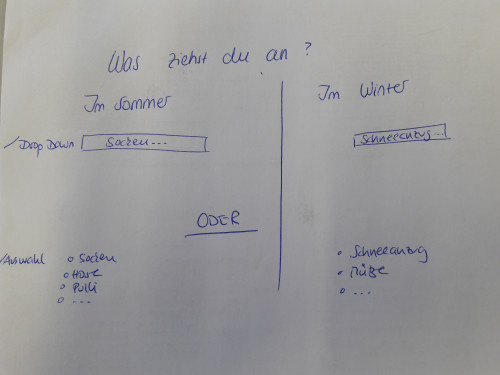 Was ziehst du an ?
Im Sommer
Im Winter
Drop Down Socken...
Schneeanzug...
ODER
Auswahl
Socken
Hose
Pulli
...
Schneeanzug
Müße
...